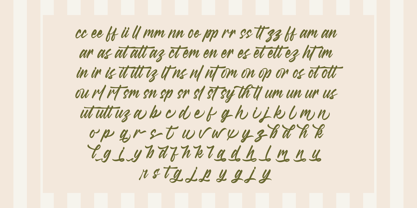 cc ee ff ii ll mm nn oe pp rr ss tt zz ff am an
ar as at att az ct em en er es et ett ez ht im
in ir is it itt iz lt ns nt om on op or os ot ott
ou rt sm sn sp sr st sy th tt um un ur us
ut utt uz a b c d e f g h i j k l m n
o p q r s t u v w x y z b d h k
l g j y b d f h k l a d h l m n u
r s t g j p y g j y